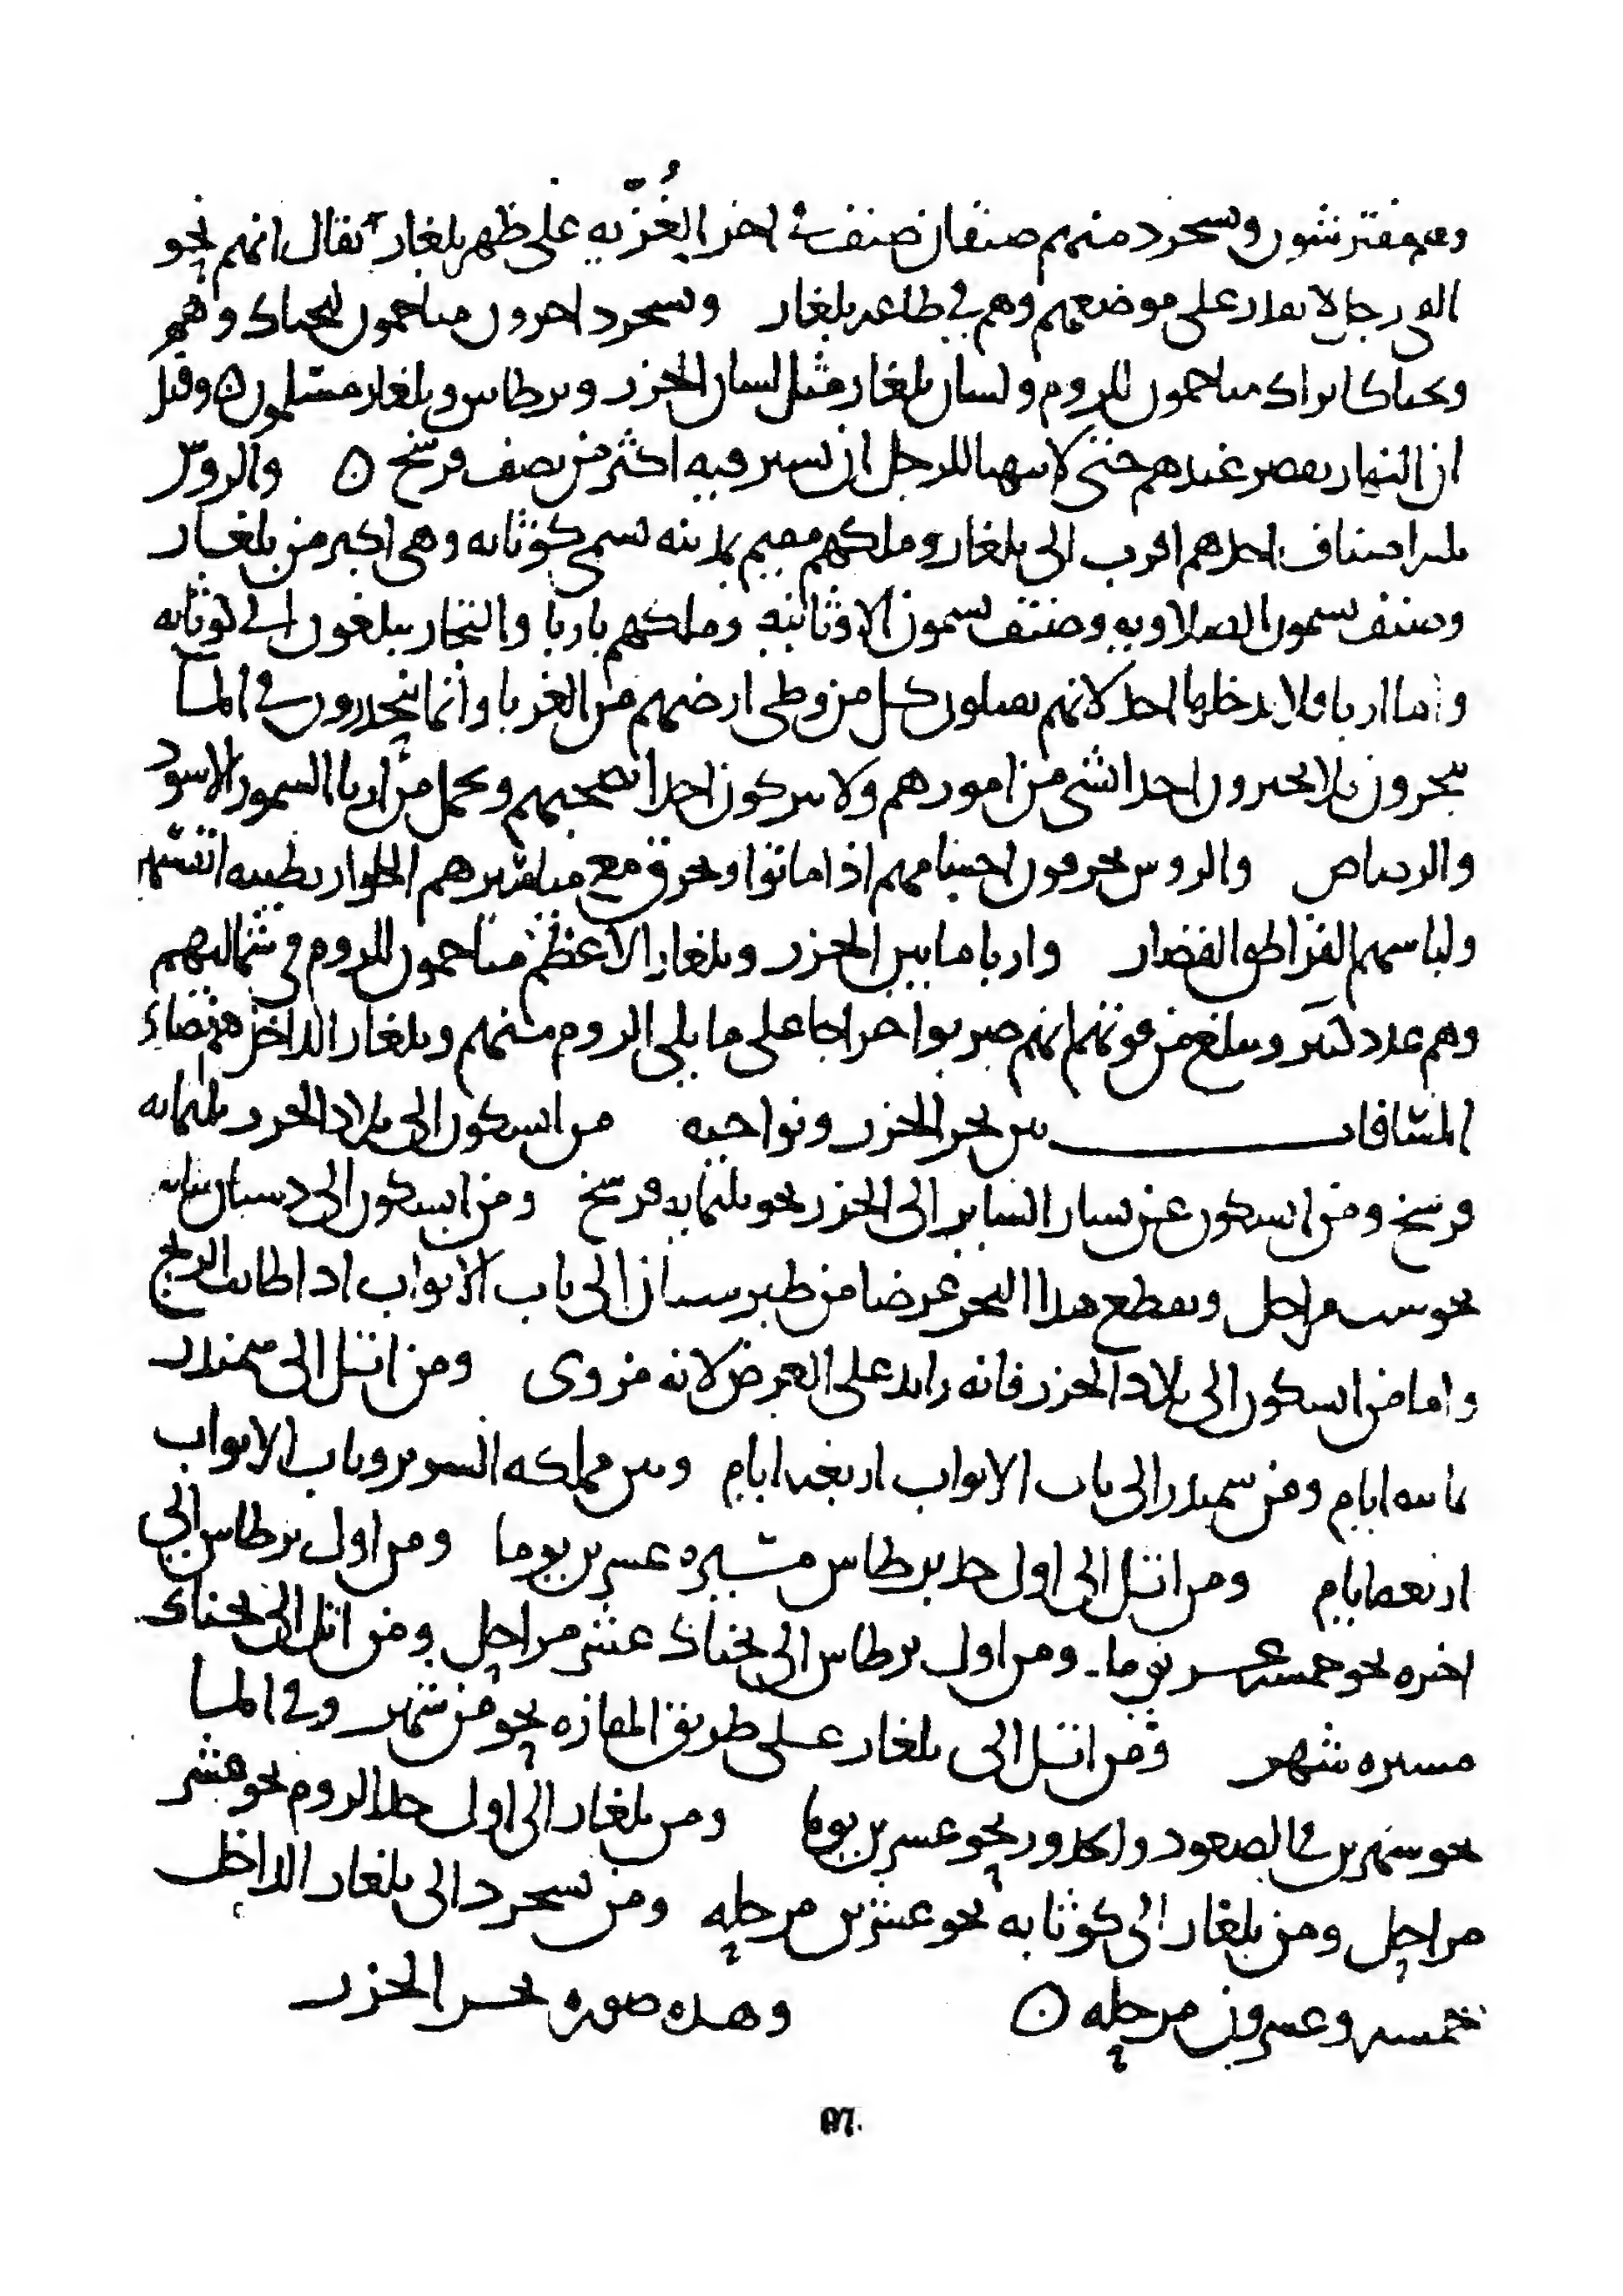 وهم مفترشون وبسجرد منهم صنفان صنف في اخر الغُزّيه على ظهر بلغار يقال انهم نحو
الفى رجل لا يقدر على موضعهم وهم في طاعه بلغار وبسجرد اخرون متاخمون لبجناك وهم
وبجناك اتراك متاخمون للروم ولسان بلغار مثل لسان الخزر وبرطاس وبلغار مسلمون ۞ وقيل
ان النهار يقصر عندهم حتى لا يتهيا للرجل ان يسير فيه اكثر من نصف فرسخ ۞ والروس
ثلثه اصناف احدهم اقرب الى بلغار وملكهم مقيم بمدينه تسمى كوثابه وهى اكبر من بلغار
وصنف يسمون الصلاويه وصنف يسمون الاوثانيه وملكهم باربا والتجار يبلغون الى كوثابه
واما اربا فلا يدخلها احد لانهم يقتلون كل من وطى ارضهم من الغربا وانما ينحدرون في الما
يتجرون فلا يخبرون احدا بشى من امورهم ولا يتركون احدا يصحبهم ويحمل من اربا السمور الاسود
والرصاص والروس يحرقون اجسامهم اذا ماتوا ويحرق مع مياسيرهم الجوار بطيبه انفسهم
ولباسهم القراطق القصار واربا ما بين الخزر وبلغار الاعظم متاخمون للروم في شماليهم
وهم عدد كثير ويبلغ من قوتهم انهم ضربوا خراجا على ما يلي الروم منهم وبلغار الداخل هم نصارى
المسافات بين بحر الخزر ونواحيه من ابسكون الى بلاد الخزر ثلثمايه
فرسخ ومن ابسكون عن يسار الساير الى الخزر نحو ثلثمايه فرسخ ومن ابسكون الى دهستان
نحو ست مراحل ويقطع هذا البحر عرضا من طبرستان الى باب الابواب اذا طابت الريح
واما من ابسكون الى بلاد الخزر فانه زايد على العرض لانه مزوى ومن اتل الى سمندر
ثمانيه ايام ومن سمندر الى باب الابواب اربعه ايام وبين مملكه السرير وباب الابواب
اربعه ايام ومن اتل الى اول حد برطاس مسيره عشرين يوما ومن اول برطاس الى
اخره نحو خمسه عشر يوما ومن اول برطاس الى بجناك عشر مراحل ومن اتل الى بجناك
مسيره شهر ومن اتل الى بلغار على طريق المفازه نحو من شهر وفي الما
نحو شهرين في الصعود والحدور نحو عشرين يوما ومن بلغار الى اول حد الروم نحو عشر
مراحل ومن بلغار الى كوثابه نحو عشرين مرحله ومن بسجرد الى بلغار الداخل
خمسه وعشرون مرحله ۞ وهذه صوره بحر الخزر